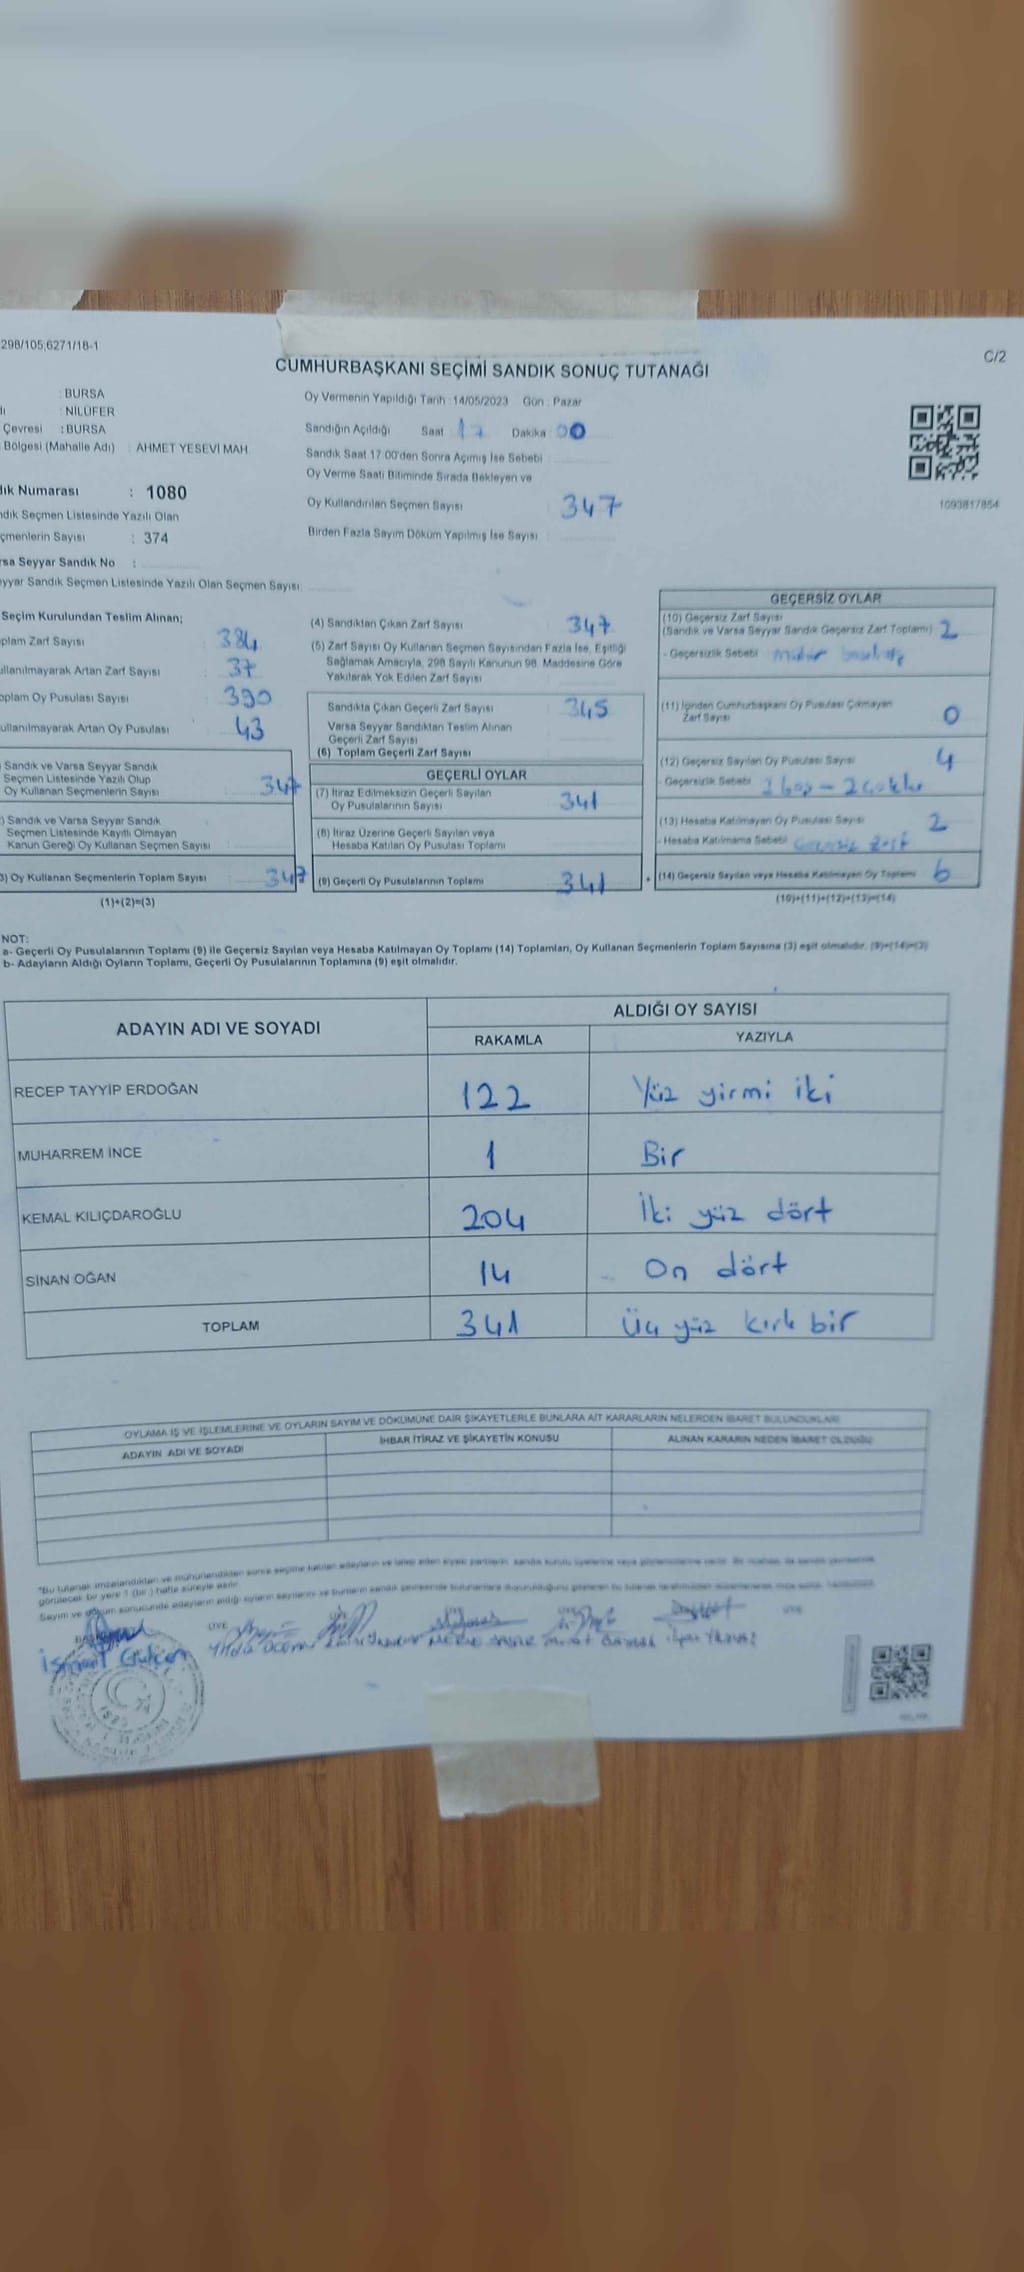 298/105,6271/18-1
C/2
CUMHURBAŞKANI SEÇİMİ SANDIK SONUÇ TUTANAĞI
: BURSA
: NİLÜFER
Çevresi : BURSA
Bölgesi (Mahalle Adı) : AHMET YESEVİ MAH.
Numarası : 1080
Seçmen Listesinde Yazılı Olan
Sayısı : 374
Seyyar Sandık No :
Sandık Seçmen Listesinde Yazılı Olan Seçmen Sayısı
Oy Vermenin Yapıldığı Tarih : 14/05/2023 Gün : Pazar
Sandığın Açıldığı Saat 17 Dakika : 00
Sandık Saat 17.00'den Sonra Açımış İse Sebebi
Oy Verme Saati Bitiminde Sırada Bekleyen ve
Oy Kullandırılan Seçmen Sayısı 347
Birden Fazla Sayım Döküm Yapılmış İse Sayısı
1093817854
Seçim Kurulundan Teslim Alınan;
Zarf Sayısı : 384
Artan Zarf Sayısı : 37
Oy Pusulası Sayısı : 390
Artan Oy Pusulası : 43
Sandık ve Varsa Seyyar Sandık
Seçmen Listesinde Yazılı Olup
Oy Kullanan Seçmenlerin Sayısı : 347
Sandık ve Varsa Seyyar Sandık
Seçmen Listesinde Kayıtlı Olmayan
Kanun Gereği Oy Kullanan Seçmen Sayısı :
3) Oy Kullanan Seçmenlerin Toplam Sayısı : 347
(1)+(2)=(3)
(4) Sandıktan Çıkan Zarf Sayısı : 347
(5) Zarf Sayısı Oy Kullanan Seçmen Sayısından Fazla İse, Eşitliği
Sağlamak Amacıyla, 298 Sayılı Kanunun 98. Maddesine Göre
Yakılarak Yok Edilen Zarf Sayısı
Sandıkta Çıkan Geçerli Zarf Sayısı : 345
Varsa Seyyar Sandıktan Teslim Alınan
Geçerli Zarf Sayısı
(6) Toplam Geçerli Zarf Sayısı
GEÇERLİ OYLAR
(7) İtiraz Edilmeksizin Geçerli Sayılan
Oy Pusulalarının Sayısı 341
(8) İtiraz Üzerine Geçerli Sayılan veya
Hesaba Katılan Oy Pusulası Toplamı
(9) Geçerli Oy Pusulalarının Toplamı 341
GEÇERSİZ OYLAR
(10) Geçersiz Zarf Sayısı
(Sandık ve Varsa Seyyar Sandık Geçersiz Zarf Toplamı) 2
- Geçersizlik Sebebi
(11) İçinden Cumhurbaşkanı Oy Pusulası Çıkmayan
Zarf Sayısı 0
(12) Geçersiz Sayılan Oy Pusulası Sayısı 4
- Geçersizlik Sebebi 2 boş - 2
(13) Hesaba Katılmayan Oy Pusulası Sayısı 2
- Hesaba Katılmama Sebebi Geçersiz Zarf
+ (14) Geçersiz Sayılan veya Hesaba Katılmayan Oy Toplamı 6
(10)+(11)+(12)+(13)=(14)
NOT:
a- Geçerli Oy Pusulalarının Toplamı (9) ile Geçersiz Sayılan veya Hesaba Katılmayan Oy Toplamı (14) Toplamları, Oy Kullanan Seçmenlerin Toplam Sayısına (3) eşit olmalıdır. (9)+(14)=(3)
b- Adayların Aldığı Oyların Toplamı, Geçerli Oy Pusulalarının Toplamına (9) eşit olmalıdır.
ADAYIN ADI VE SOYADI ALDIĞI OY SAYISI
RAKAMLA YAZIYLA
RECEP TAYYİP ERDOĞAN 122 Yüz yirmi iki
MUHARREM İNCE 1 Bir
KEMAL KILIÇDAROĞLU 204 İki yüz dört
SİNAN OĞAN 14 On dört
TOPLAM 341 Üç yüz kırk bir
OYLAMA İŞ VE İŞLEMLERİNE VE OYLARIN SAYIM VE DÖKÜMÜNE DAİR ŞİKAYETLERLE BUNLARA AİT KARARLARIN NELERDEN İBARET BULUNDUKLARI
ADAYIN ADI VE SOYADI İHBAR İTİRAZ VE ŞİKAYETİN KONUSU ALINAN KARARIN NEDEN İBARET OLDUĞU